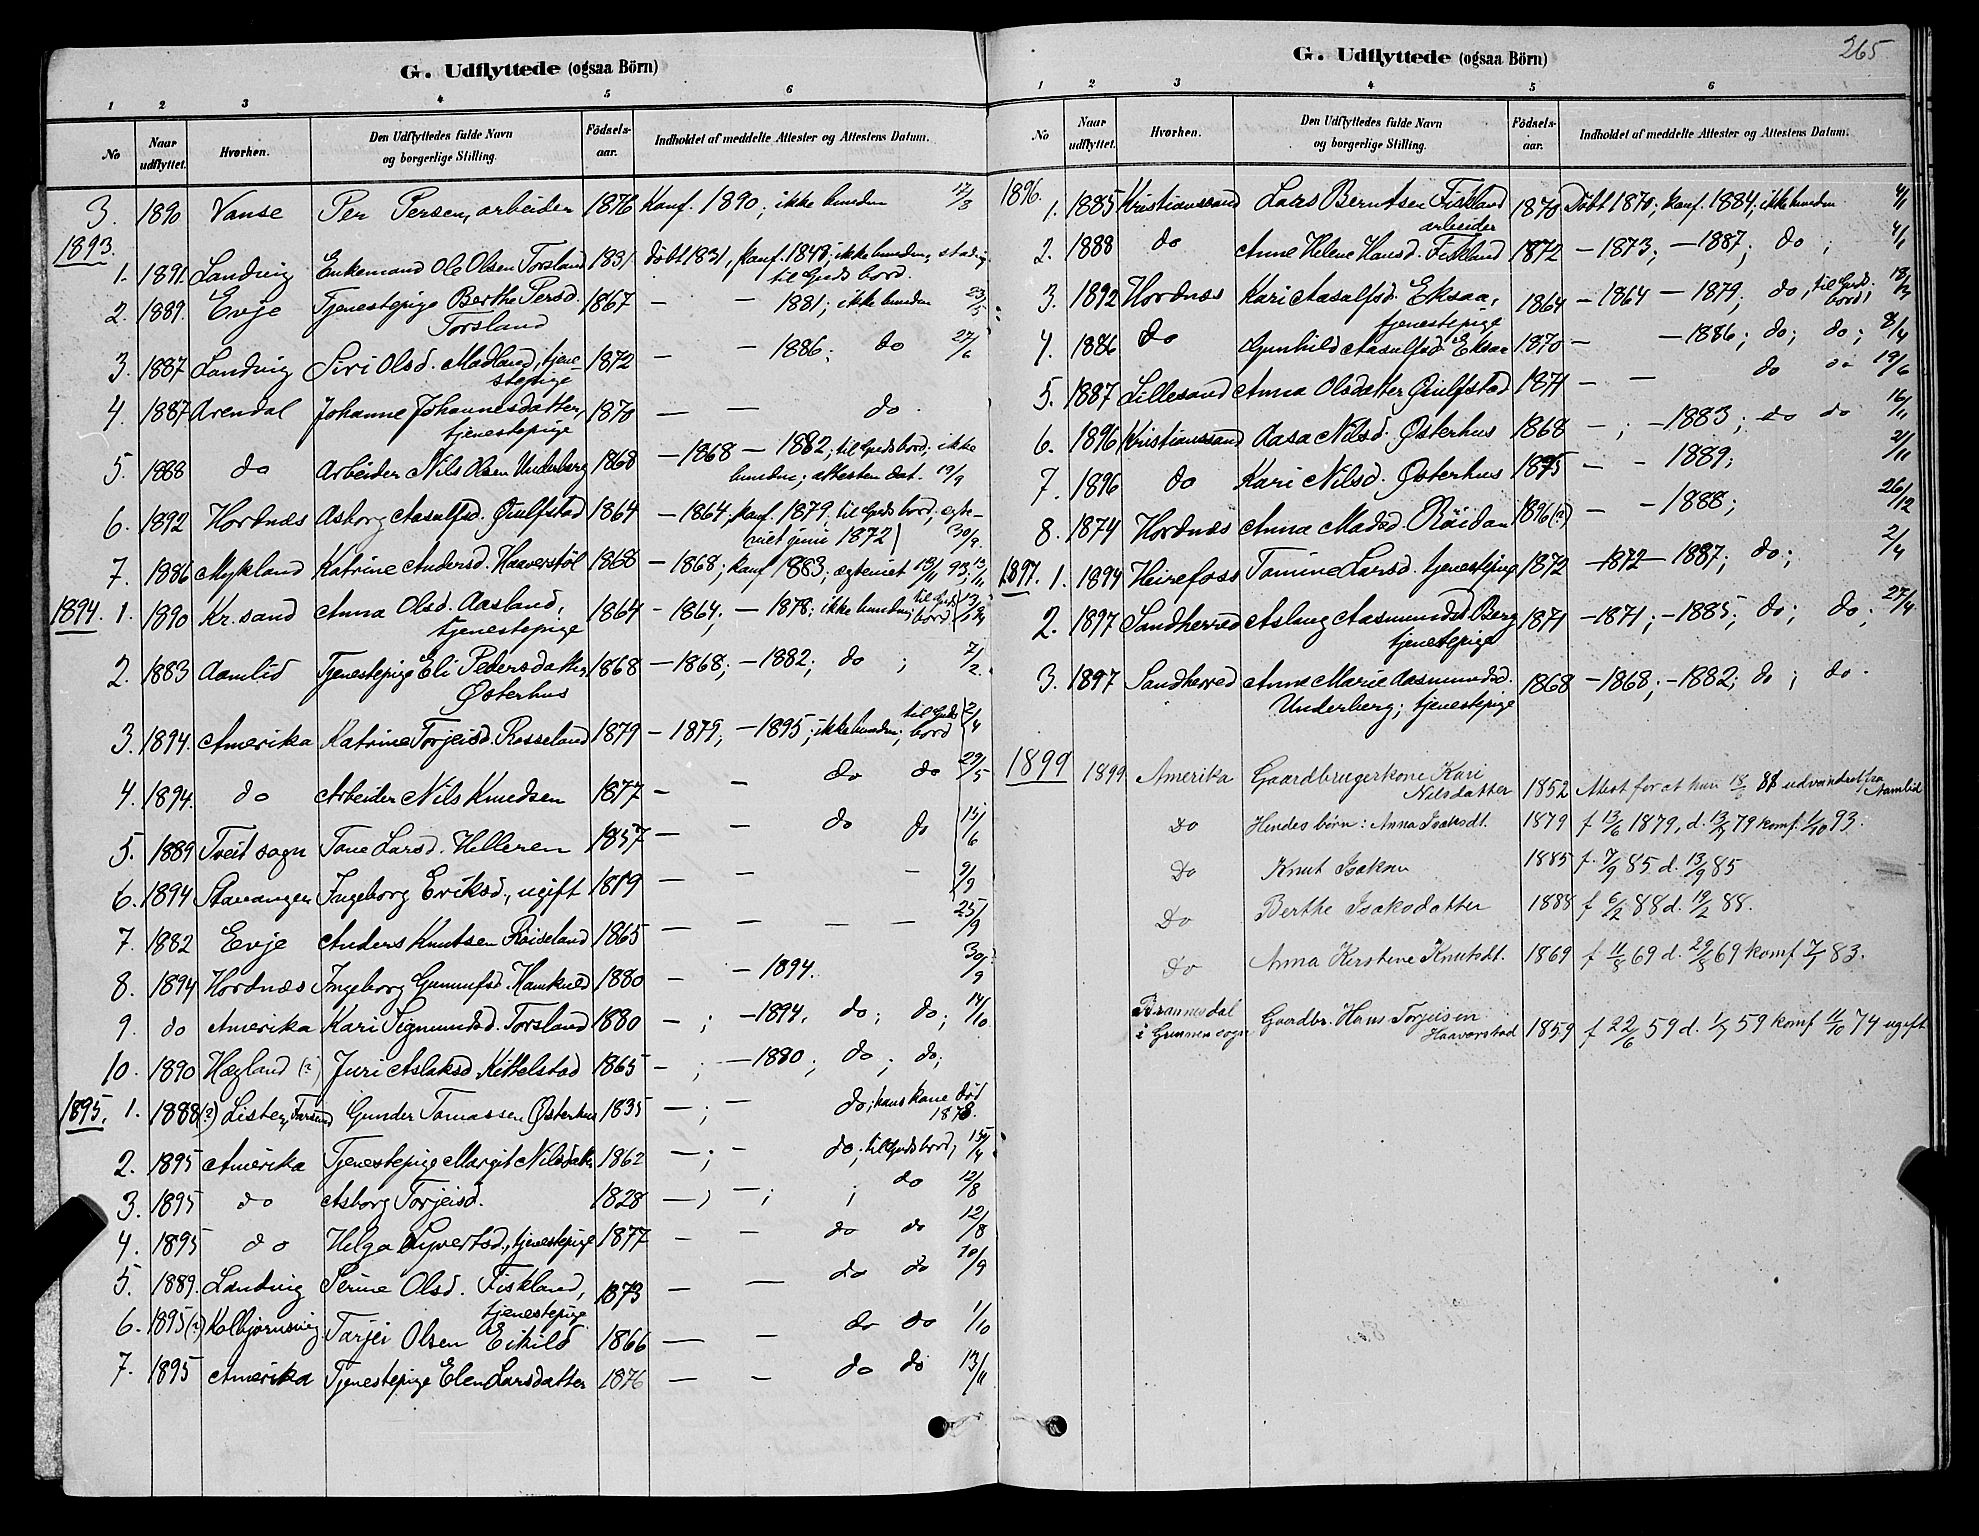 G. Udflyttede (ogsaa Börn)
1 2 3 4 5 6
No Naar udflyttet. Hvorhen. Den Udflyttedes fulde Navn og borgerlige Stilling. Födsels-aar. Indholdet af meddelte Attester og Attestens Datum.
3. 1890 Vanse Per Persen, arbeider 1876 Konf. 1890; ikke bunden 12/3
1893.
1. 1891. Landvig Enkemand Ole Olsen Torsland 1831 Döbt 1831, konf. 1848; ikke bunden, stadig
til Guds bord.
2. 1889. Evje Tjenestepige Berthe Persd. 1867 — — 1881; ikke bunden 23/5
Torsland
3. 1887 Landvig Siri Olsd. Madland, tjene- 1872 — — 1886; do 27/6
stepige
4. 1887 Arendal Johanne Johannesdatter, 1870 — — do.
tjenestepige
5. 1888 do Arbeider Nils Olsen Underberg 1868 — 1868 — 1882; til Guds bord; ikke
bunden; attesten dat. 19/9
6. 1892 Hordnæs Asborg Aasulfsd. Øiulfstad 1864 — 1864, konf. 1879, til Guds bord, egte-
viet 1872) 30/9.
7. 1886 Mykland Katrine Andersd. Haaverstöl 1868 — 1868; konf 1883; ægteviet 13/11 93; 13/11
1894. 1. 1890 Kr.sand Anna Olsd. Aasland, 1864 — 1864; — 1878; ikke bunden; til Guds bord
tjenestepige
2. 1883 Aamlid Tjenestepige Eli Pedersdatter 1868 — 1868; — 1882; do ; 7/2.
Østerhus
3. 1894. Amerika Katrine Torjeisd. Rosseland 1879 — 1879; — 1895; ikke bunden; til Guds bord 2/4
4. 1894. do Arbeider Nils Knudsen 1877 — — do do 29/5
5. 1889 Tveit sogn Tone Larsd. Helleren 1857 — — do do 15/6
6. 1894 Stavanger Ingeborg Eriksd., ugift 1879 — — — 9/9
7. 1882 Evje Anders Knutsen Röiseland 1865 — — — — 25/9
8. 1894 Hordnæs Ingeborg Gunnufsd. Hamkuld 1880 — — 1894. 30/9
9. do Amerika Kari Sigmundsd. Torsland 1880 — ; — 1894. do; do; 14/10
10. 1890 Hægland (?) Juri Aslaksd. Kittelstad 1865 — ; — 1880; do; do;
1895. 1. 1888(?) Lister, Farsund Gunder Tomassen Østerhus 1835 — ; — do; hans kone död
1878.
2. 1895 Amerika Tjenestepige Margit Nilsdatter 1862 — ; — do; til Guds bord; 15/4
3. 1895 do Asborg Torjeisd. 1828 — ; — ; ; do 12/8
4. 1895 do Helga Syvertsd., tjenestepige 1877 — — do do 12/8
5. 1889. Landvig Serine Olsd. Fiskland, 1873 — — do do 10/9
tjenestepige.
6. 1895(?) Kolbjørnsvig Tarjei Olsen Eikild 1866 — — do do 1/10
7. 1895 Amerika Tjenestepige Elen Larsdatter 1876 — — do do 13/11
265
G. Udflyttede (ogsaa Börn)
1 2 3 4 5 6
No Naar udflyttet. Hvorhen. Den Udflyttedes fulde Navn og borgerlige Stilling. Födsels-aar. Indholdet af meddelte Attester og Attestens Datum.
1896. 1. 1885 Kristianssand Lars Berntsen Fiskland 1870 Döbt 1870; konf. 1884; ikke bunden 4/1
arbeider
2. 1888 do Anne Helene Hansd. Fiskland 1872 — 1873; — 1887; do ; 4/1
3. 1892 Hordnæs Kari Aasulfsd. Eksaa, 1864 — 1864 — 1879; do; til Guds bord; 18/3
tjenestepige
4. 1886 do Gunhild Aasulfsd Eksaa 1870 — — 1886; do; do; 8/4
5. 1887 Lillesand Anna Olsdatter Øiulfstad 1871 — — do do 19/6
6. 1896 Kristianssand Aasa Nilsd. Østerhus 1868 — ; — 1883; do do 16/11
7. 1896 do Kari Nilsd. Østerhus 1875 — — 1889; 21/11
8. 1874 Hordnæs Anna Madsd. Röidan 1896(?) — — 1888; 26/12
1897. 1. 1894 Heirefoss Tomine Larsd. tjenestepige 1872 — 1872 — 1887; do; 2/4
2. 1897 Sandherred Aslaug Aasmundsd Berg 1871 — 1871; — 1885; do; do; 27/4
tjenestepige
3. 1897 Sandherred Anne Marie Aasmundsd. 1868 — 1868; — 1882; do ; do.
Underberg; tjenestepige
1899 1899. Amerika Gaardbrugerkone Kari 1852 Attest for at hun 18/6 88 udvandret fra Aamlid
Nilsdatter
Do Hendes børn: Anna Isaksdt. 1879 f 13/6 1879, d. 13/7 79 komf. 1/10 93.
Do Knut Isaksen 1885 f. 7/9 85 d. 13/9 85
Do Berthe Isaksdatter 1888 f 6/2 88 d. 19/2 88.
Do Anna Kirstine Knutsdt. 1869 f 11/8 69 d. 29/8 69 komf 7/1 83.
Brannesdal
i Grimmen sogn Gaardbr. Hans Torjeisen 1859 f 22/6 59 d. 1/7 59 komf 11/10 74 ugift
Haaverstad